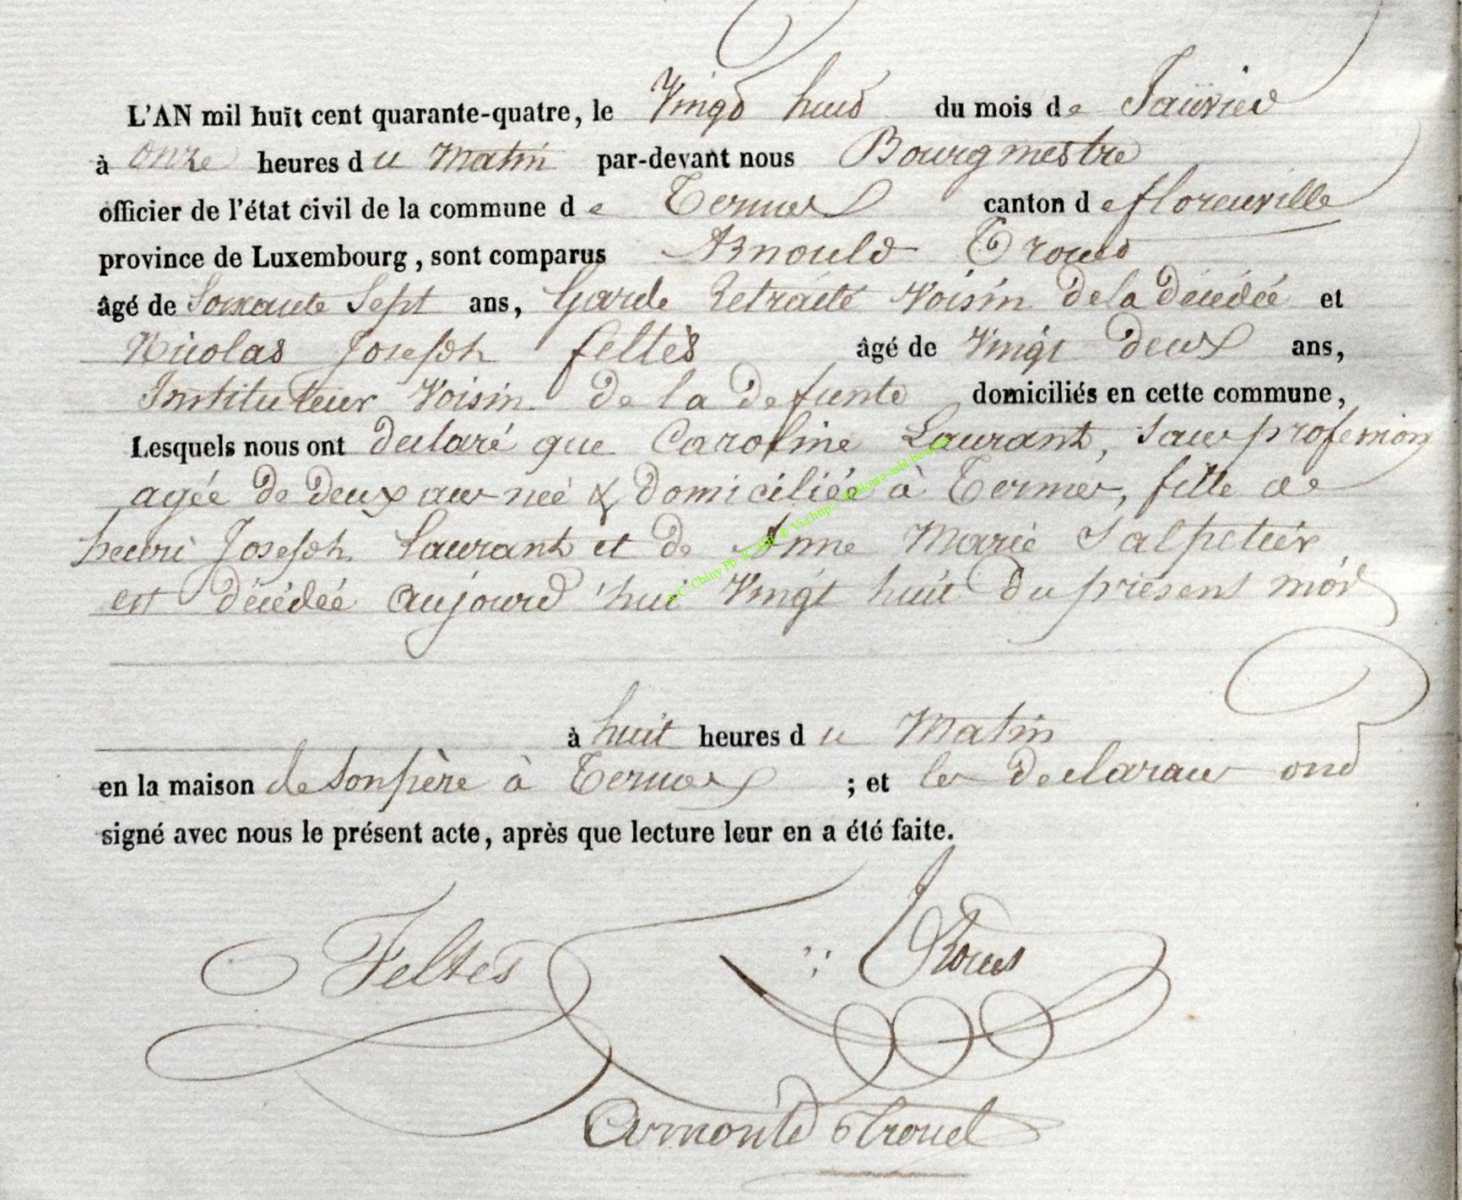 L'AN mil huit cent quarante-quatre, le Vingt huit du mois de Janvier
à onze heures du Matin par-devant nous Bourgmestre
officier de l'état civil de la commune de Termes canton de florenville
province de Luxembourg, sont comparus Arnould
âgé de Soixante Sept ans, Garde Retraité Voisin de la décédée et
Nicolas Joseph feltès âgé de Vingt deux ans,
Instituteur Voisin de la defunte domiciliés en cette commune,
Lesquels nous ont declaré que Caroline Laurant, sans profession
agée de deux ans neé & domiciliée à Termes, fille de
henri Joseph Laurant et de Anne Marie Salpetier
est décédée aujourd'hui Vingt huit du présent mois
à huit heures du Matin
en la maison de son père à Termes ; et les declarans ont
signé avec nous le présent acte, après que lecture leur en a été faite.
Feltes
Arnould